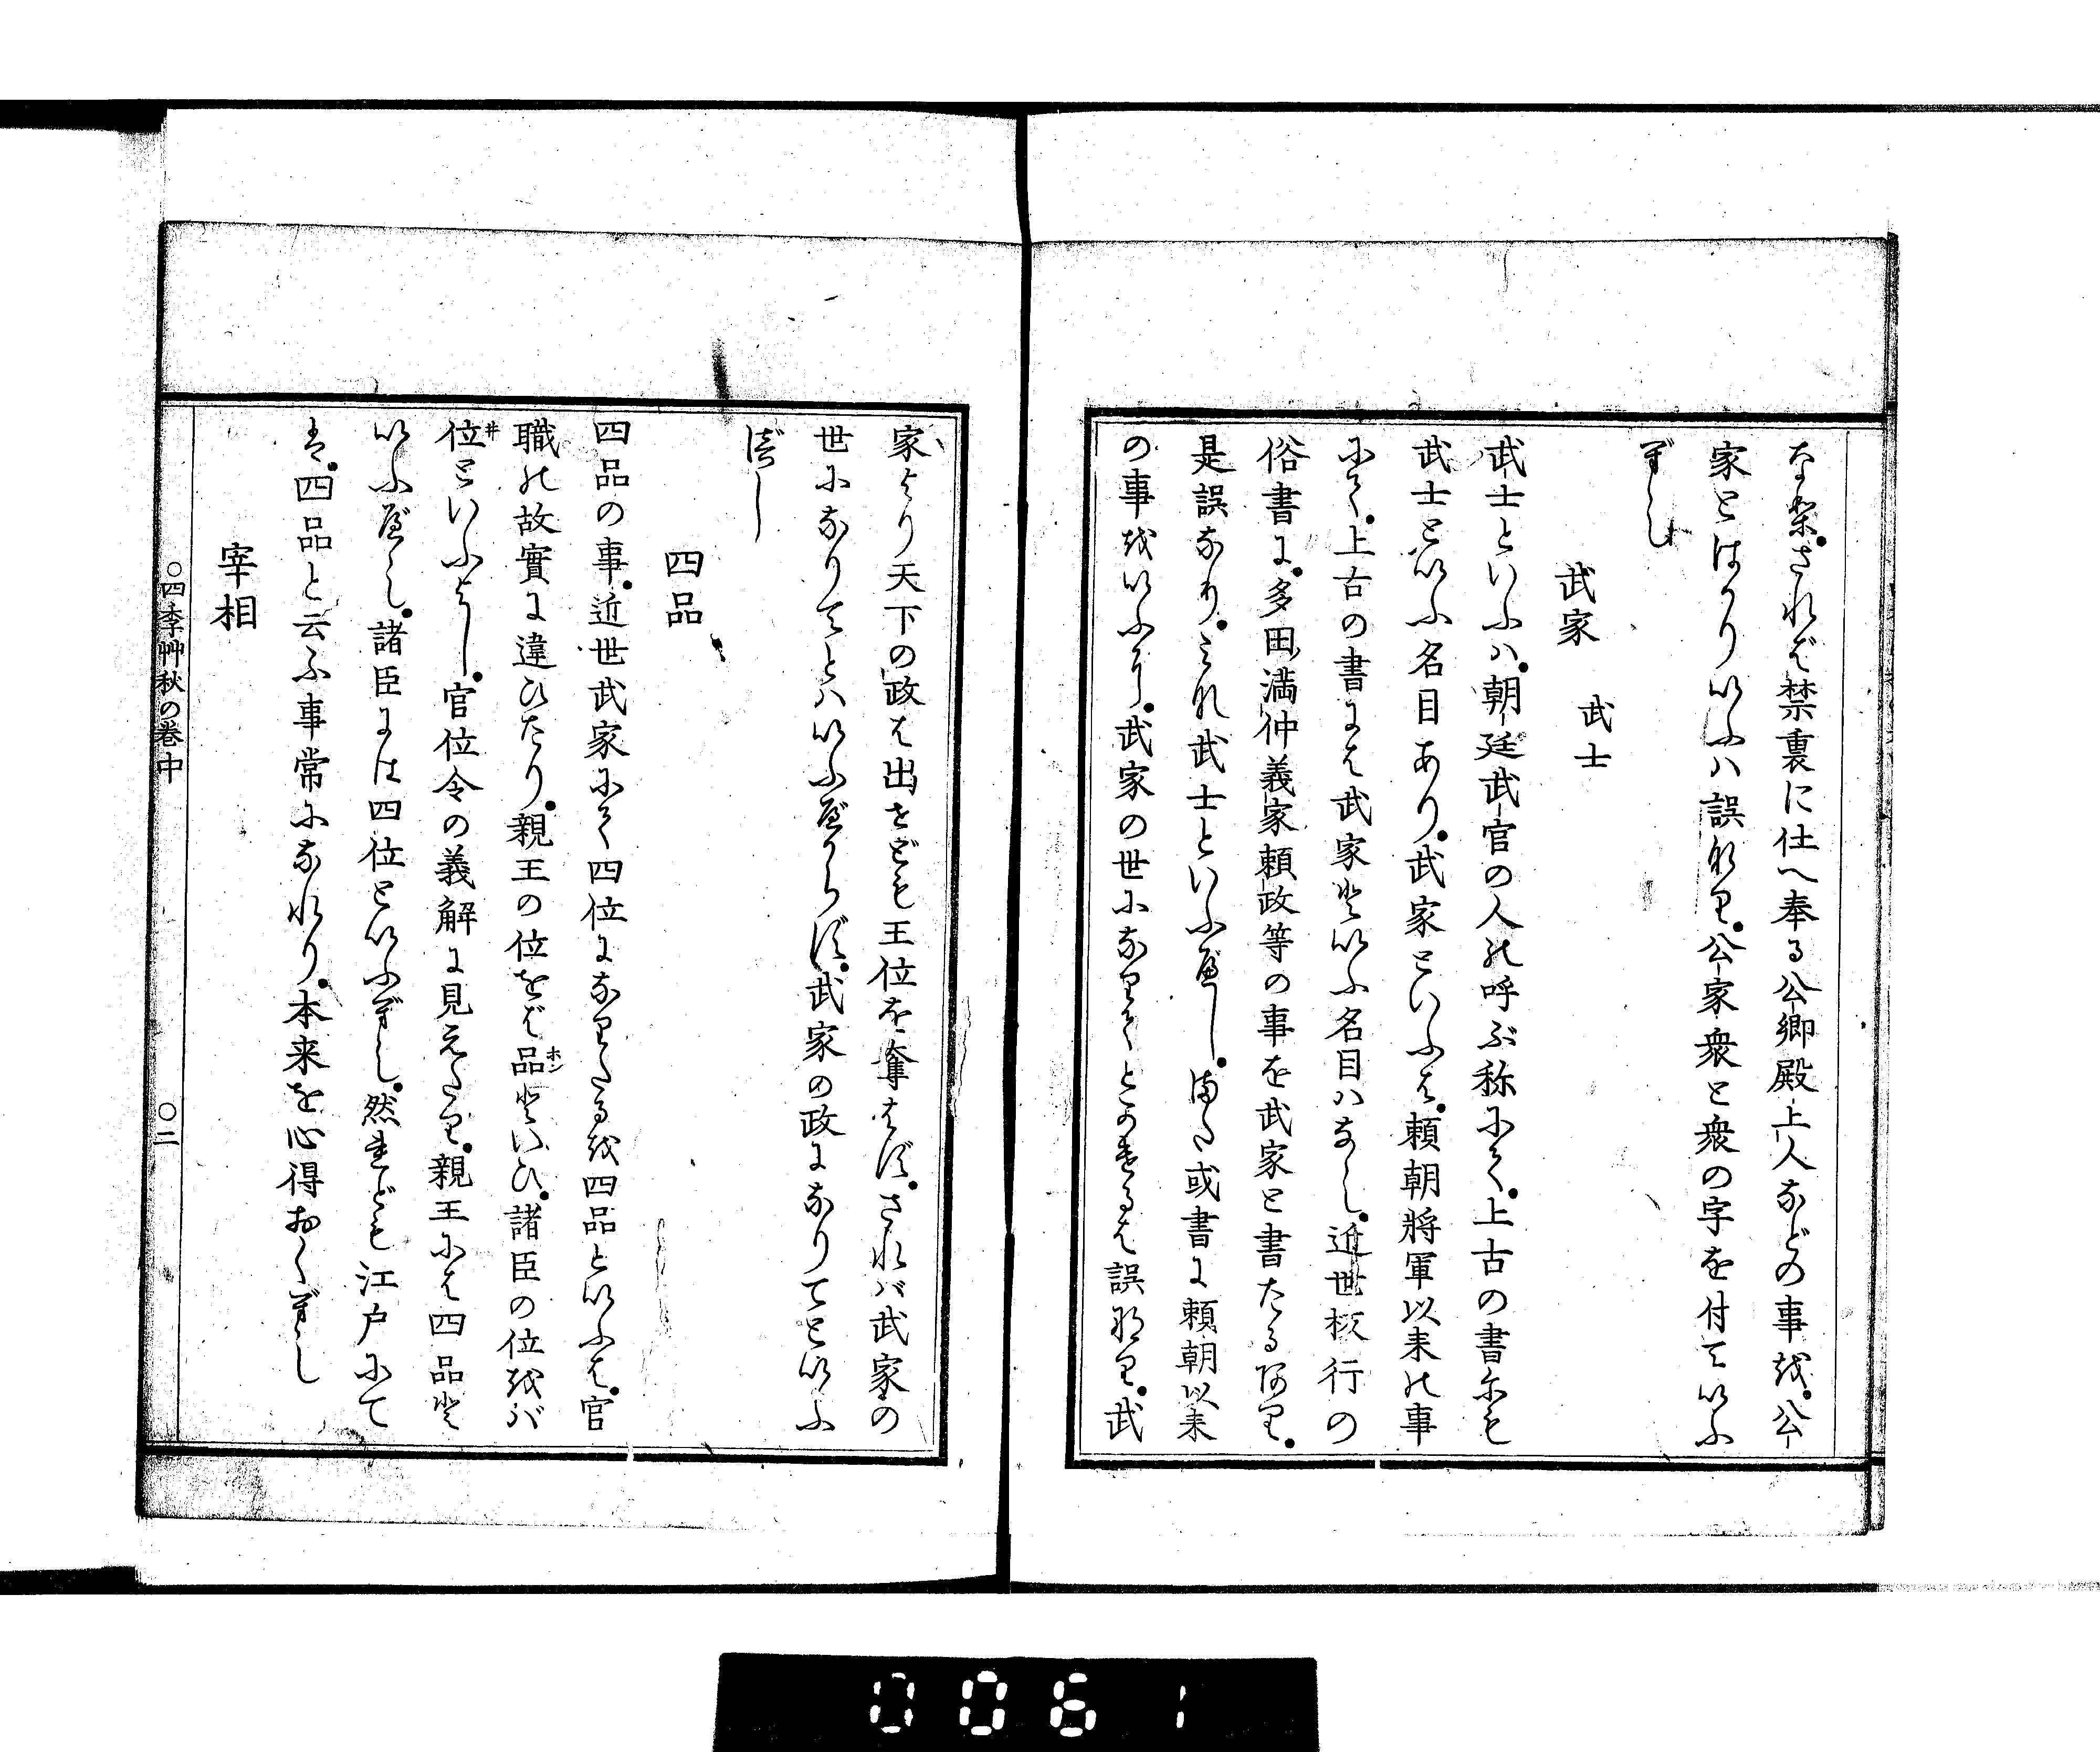 なれ。されば禁裏に仕へ奉る公卿殿上人などの事を。公
家とはかりいふハ誤なり。公家衆と衆の字を付ていふ
べし
武家 武士
武士といふハ。朝廷武官の人の呼ぶ称にて。上古の書にも
武士といふ名目あり。武家といふは。頼朝将軍以来の事
にて。上古の書には武家といふ名目ハなし。近世板行の
俗書に。多田満仲義家頼政等の事を武家と書たるあり。
是誤なり。これ武士といふべし。又或書に頼朝以来
の事をいふに。武家の世になりてとかけるは誤なり。武
家より天下の政は出せども王位を奪はず。されバ武家の
世になりてとハいふべからず。武家の政になりてといふ
べし
四品
四品の事。近世武家にて四位になりたるを四品といふは。官
職の故實に違ひたり。親王の位をば品といひ。諸臣の位をバ
位といふよし。官位令の義解に見えたり。親王には四品と
いふべし。諸臣には四位といふべし。然れども江戸にて
は。四品と云ふ事常になれり。本来を心得おくべし
宰相
○四季艸秋の巻中 ○二
0061